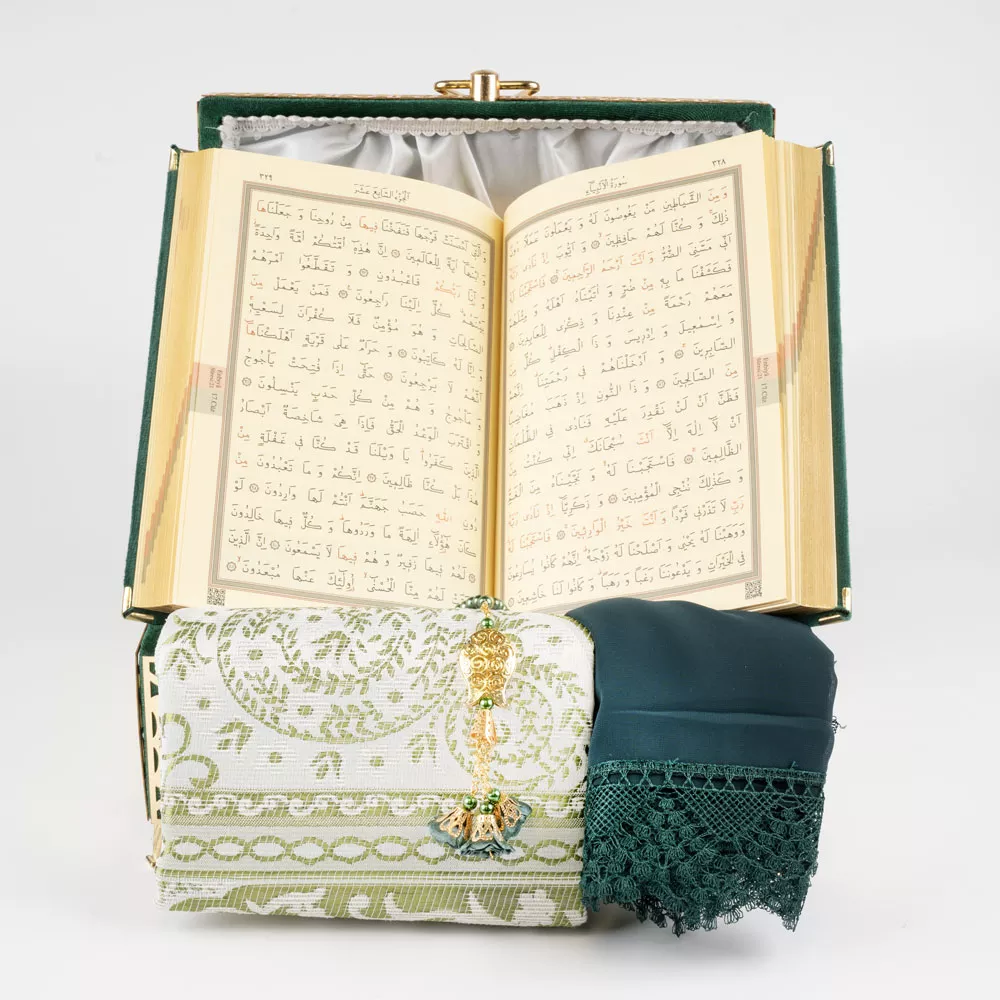 ٣٢٨
سُورَةُ الْاَنْبِيَاءِ
وَ مِنَ الشَّيَاطٖينِ مَنْ يَغُوصُونَ لَهُ وَ يَعْمَلُونَ عَمَلًا دُونَ
ذٰلِكَ وَ كُنَّا لَهُمْ حَافِظٖينَ ۞ وَ اَيُّوبَ اِذْ نَادٰى رَبَّهُ
اَنّٖى مَسَّنِىَ الضُّرُّ وَ اَنْتَ اَرْحَمُ الرَّاحِمٖينَ ۞ فَاسْتَجَبْنَا لَهُ
فَكَشَفْنَا مَا بِهٖ مِنْ ضُرٍّ وَ اٰتَيْنَاهُ اَهْلَهُ وَ مِثْلَهُمْ
مَعَهُمْ رَحْمَةً مِنْ عِنْدِنَا وَ ذِكْرٰى لِلْعَابِدٖينَ ۞
وَ اِسْمٰعٖيلَ وَ اِدْرٖيسَ وَ ذَا الْكِفْلِ كُلٌّ مِنَ
الصَّابِرٖينَ ۞ وَ اَدْخَلْنَاهُمْ فٖى رَحْمَتِنَا اِنَّهُمْ
مِنَ الصَّالِحٖينَ ۞ وَ ذَا النُّونِ اِذْ ذَهَبَ مُغَاضِبًا
فَظَنَّ اَنْ لَنْ نَقْدِرَ عَلَيْهِ فَنَادٰى فِى الظُّلُمَاتِ
اَنْ لَا اِلٰهَ اِلَّا اَنْتَ سُبْحَانَكَ اِنّٖى كُنْتُ مِنَ
الظَّالِمٖينَ ۞ فَاسْتَجَبْنَا لَهُ وَ نَجَّيْنَاهُ مِنَ الْغَمِّ
وَ كَذٰلِكَ نُنْجِى الْمُؤْمِنٖينَ ۞ وَ زَكَرِيَّا اِذْ نَادٰى رَبَّهُ
رَبِّ لَا تَذَرْنٖى فَرْدًا وَ اَنْتَ خَيْرُ الْوَارِثٖينَ ۞ فَاسْتَجَبْنَا لَهُ
وَ وَهَبْنَا لَهُ يَحْيٰى وَ اَصْلَحْنَا لَهُ زَوْجَهُ اِنَّهُمْ كَانُوا يُسَارِعُونَ
فِى الْخَيْرَاتِ وَ يَدْعُونَنَا رَغَبًا وَ رَهَبًا وَ كَانُوا لَنَا خَاشِعٖينَ ۞
٣٢٩
اَلْجُزْءُ السَّابِعَ عَشَرَ
وَ الَّتٖى اَحْصَنَتْ فَرْجَهَا فَنَفَخْنَا فٖيهَا مِنْ رُوحِنَا وَ جَعَلْنَاهَا
وَ ابْنَهَا اٰيَةً لِلْعَالَمٖينَ ۞ اِنَّ هٰذِهٖ اُمَّتُكُمْ اُمَّةً وَاحِدَةً
وَ اَنَا رَبُّكُمْ فَاعْبُدُونِ ۞ وَ تَقَطَّعُوا اَمْرَهُمْ
بَيْنَهُمْ كُلٌّ اِلَيْنَا رَاجِعُونَ ۞ فَمَنْ يَعْمَلْ مِنَ
الصَّالِحَاتِ وَ هُوَ مُؤْمِنٌ فَلَا كُفْرَانَ لِسَعْيِهٖ
وَ اِنَّا لَهُ كَاتِبُونَ ۞ وَ حَرَامٌ عَلٰى قَرْيَةٍ اَهْلَكْنَاهَا
اَنَّهُمْ لَا يَرْجِعُونَ ۞ حَتّٰى اِذَا فُتِحَتْ يَاْجُوجُ
وَ مَاْجُوجُ وَ هُمْ مِنْ كُلِّ حَدَبٍ يَنْسِلُونَ ۞
وَ اقْتَرَبَ الْوَعْدُ الْحَقُّ فَاِذَا هِىَ شَاخِصَةٌ اَبْصَارُ
الَّذٖينَ كَفَرُوا يَا وَيْلَنَا قَدْ كُنَّا فٖى غَفْلَةٍ مِنْ
هٰذَا بَلْ كُنَّا ظَالِمٖينَ ۞ اِنَّكُمْ وَ مَا تَعْبُدُونَ مِنْ
دُونِ اللّٰهِ حَصَبُ جَهَنَّمَ اَنْتُمْ لَهَا وَارِدُونَ ۞ لَوْ
كَانَ هٰؤُلَاءِ اٰلِهَةً مَا وَرَدُوهَا وَ كُلٌّ فٖيهَا خَالِدُونَ
۞ لَهُمْ فٖيهَا زَفٖيرٌ وَ هُمْ فٖيهَا لَا يَسْمَعُونَ ۞ اِنَّ الَّذٖينَ
سَبَقَتْ لَهُمْ مِنَّا الْحُسْنٰى اُولٰئِكَ عَنْهَا مُبْعَدُونَ ۞
17.Cüz
17.Cüz